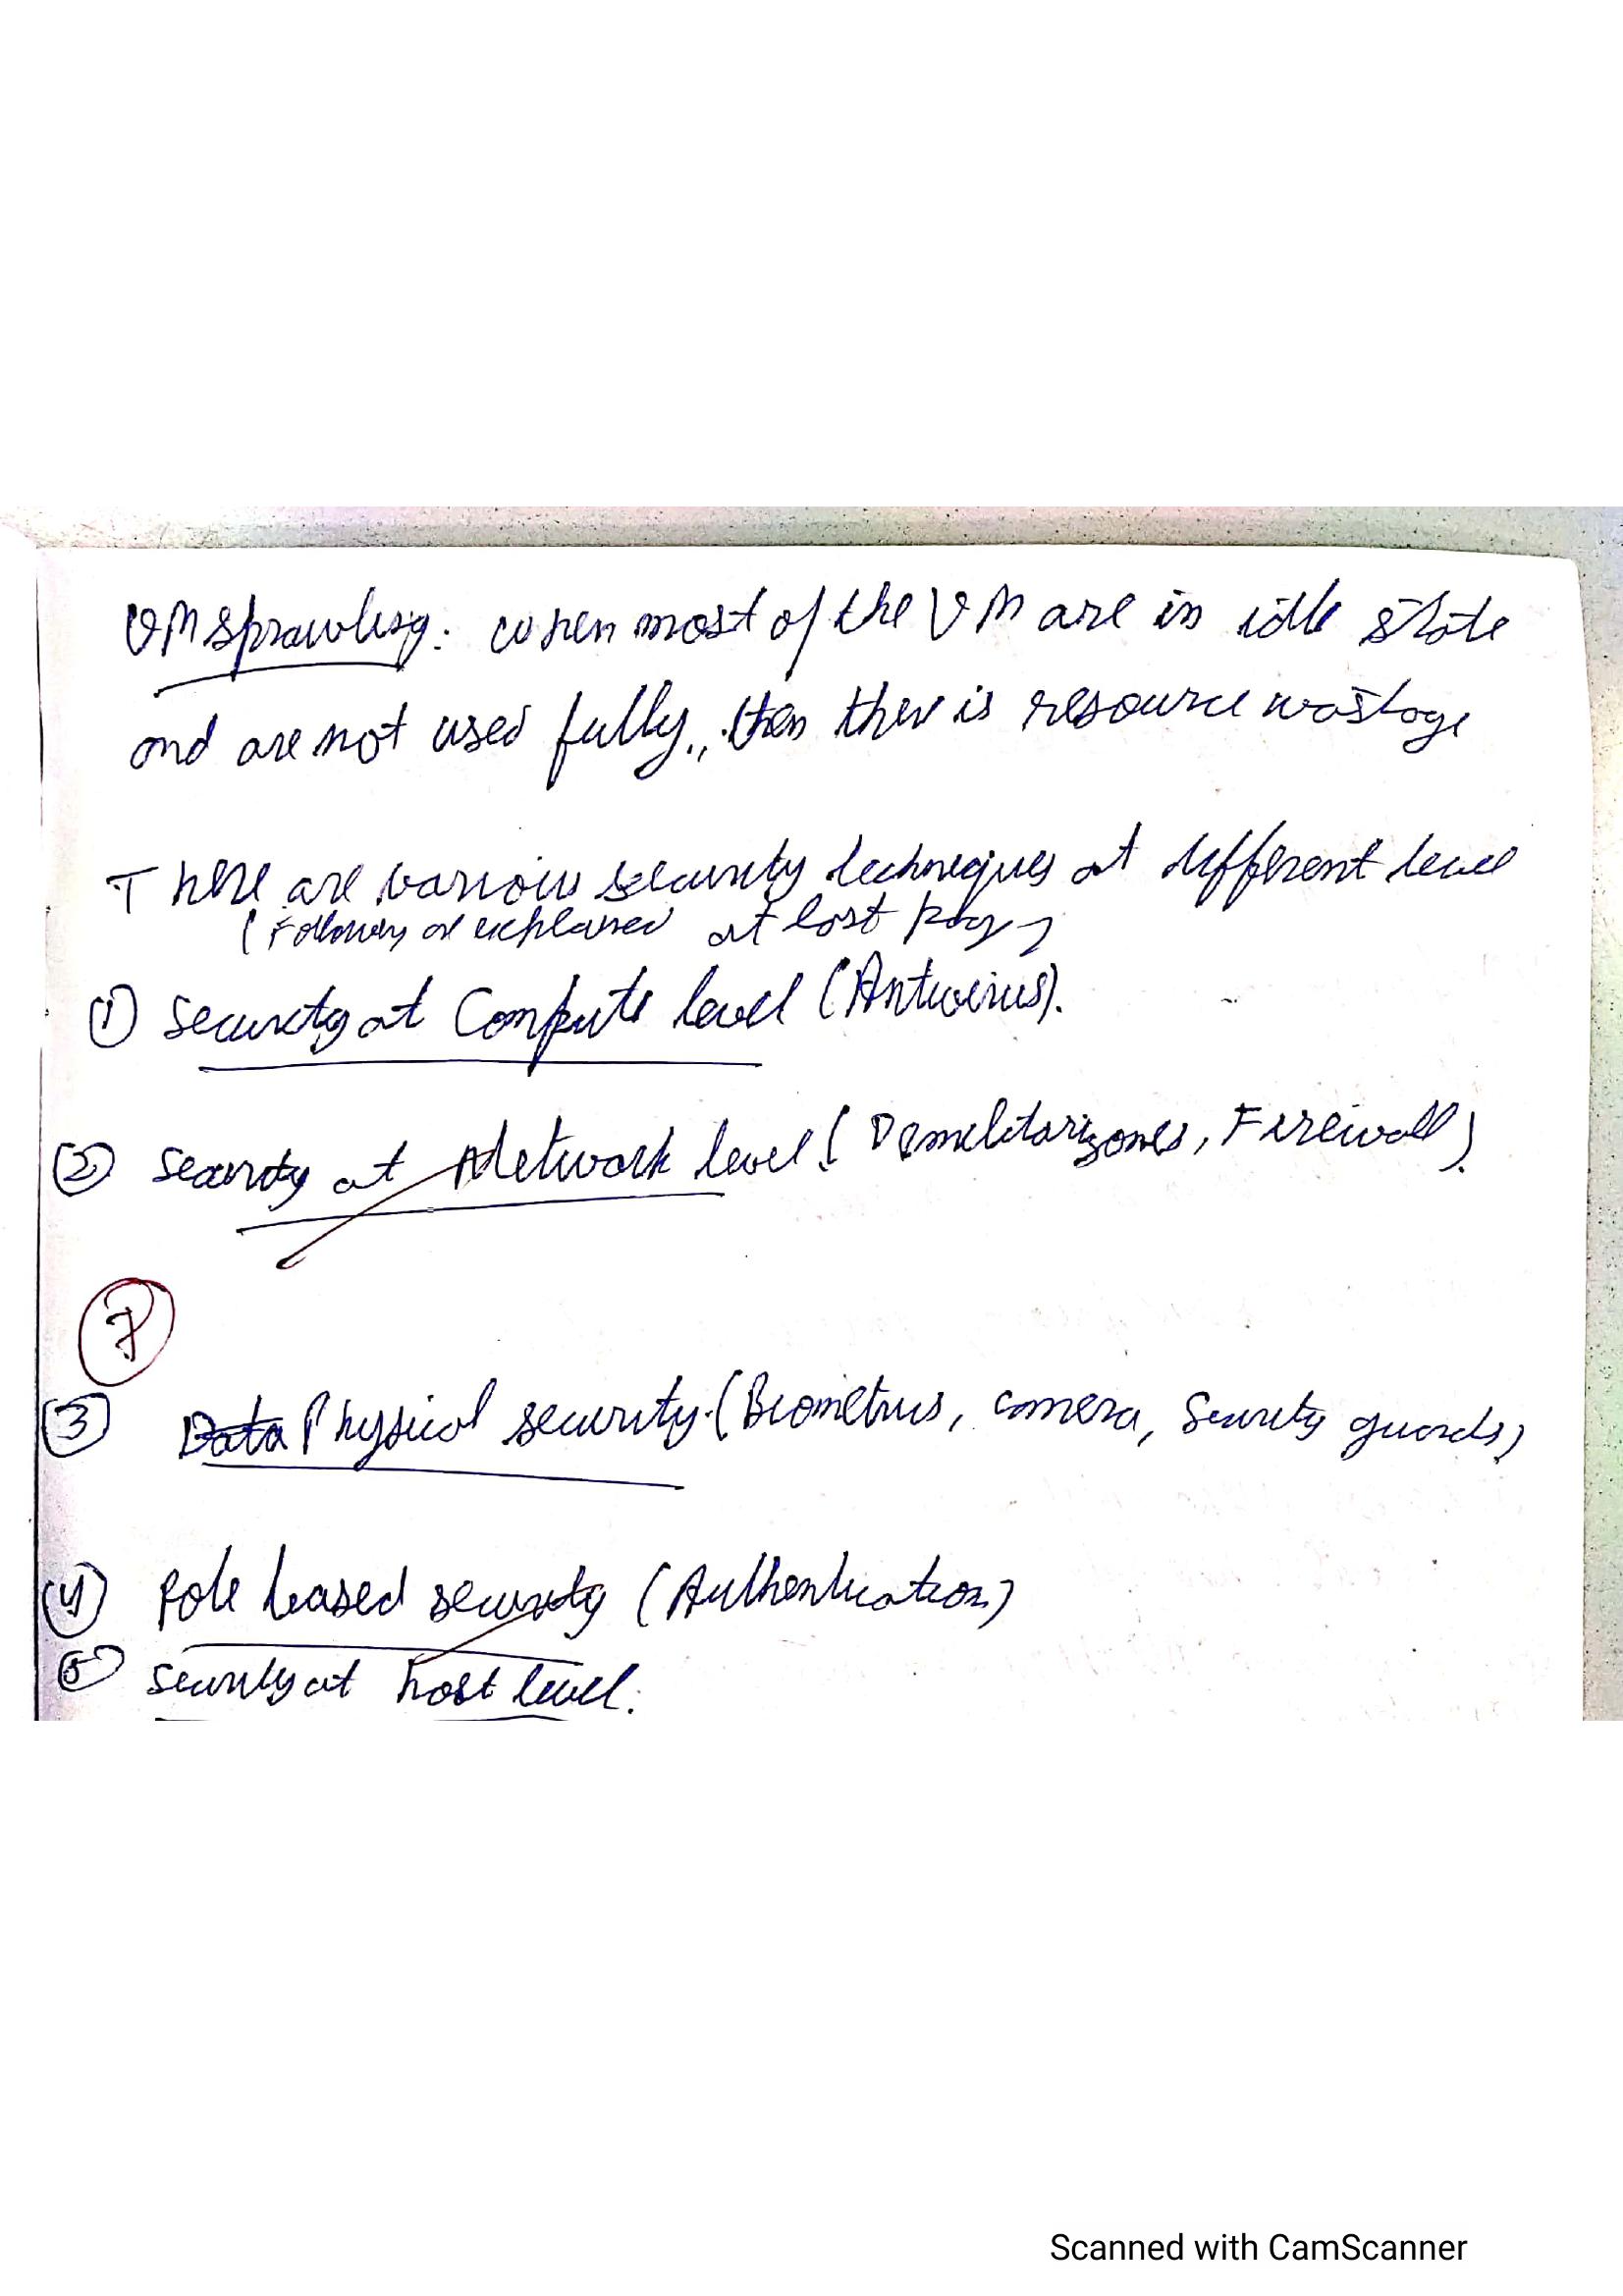 VM sprawling: when most of the VM are in idle state
and are not used fully., then ther is resource wastage
There are various security techniques at different level
(Following are explained at last page)
① Security at Compute level (Antivirus).
② Security at Network level (Demilitarizones, Firewall)
7
③ Data Physical security (Biometrics, camera, Security guards)
④ Role based security (Authentication)
⑤ Security at host level.
Scanned with CamScanner